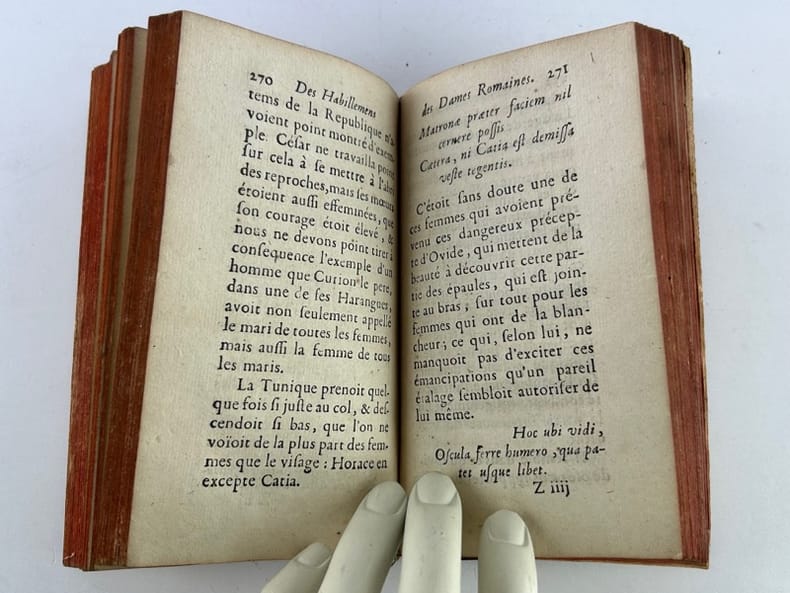 270 Des Habillemens
tems de la Republique n'a
voient point montré d'exem
ple. César ne travailla point
sur cela à se mettre à l'abri
des reproches, mais ses mœurs
étoient aussi effeminées, que
son courage étoit élevé, &
nous ne devons point tirer à
consèquence l'exemple d'un
homme que Curion le pere,
dans une de ses Harangues,
avoit non seulement appellé
le mari de toutes les femmes,
mais aussi la femme de tous
les maris.
La Tunique prenoit quel-
que fois si juste au col, & des-
cendoit si bas, que l'on ne
voïoit de la plus part des fem-
mes que le visage : Horace en
excepte Catia.
des Dames Romaines. 271
Matronæ præter faciem nil
cernere possis
Cætera, ni Catia est demissa
veste tegentis.
C'étoit sans doute une de
ces femmes qui avoient pré-
venu ces dangereux précep-
te d'Ovide, qui mettent de la
beauté à découvrir cette par-
tie des épaules, qui est join-
te au bras, sur tout pour les
femmes qui ont de la blan-
cheur; ce qui, selon lui, ne
manquoit pas d'exciter ces
émancipations qu'un pareil
étalage sembloit autoriser de
lui même.
Hoc ubi vidi,
Oscula ferre humero, qua pa-
tet usque libet.
Z iiij